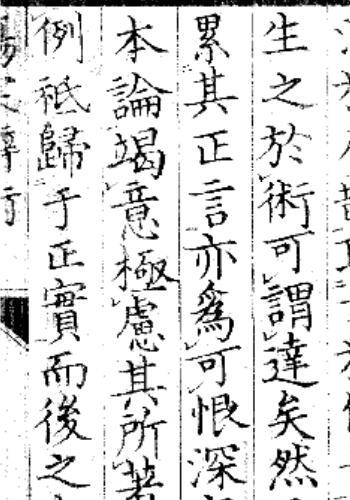 生之於術可謂達矣然
累其正言亦爲可恨深
本論竭意極慮其所著
例祗歸于正實而後之